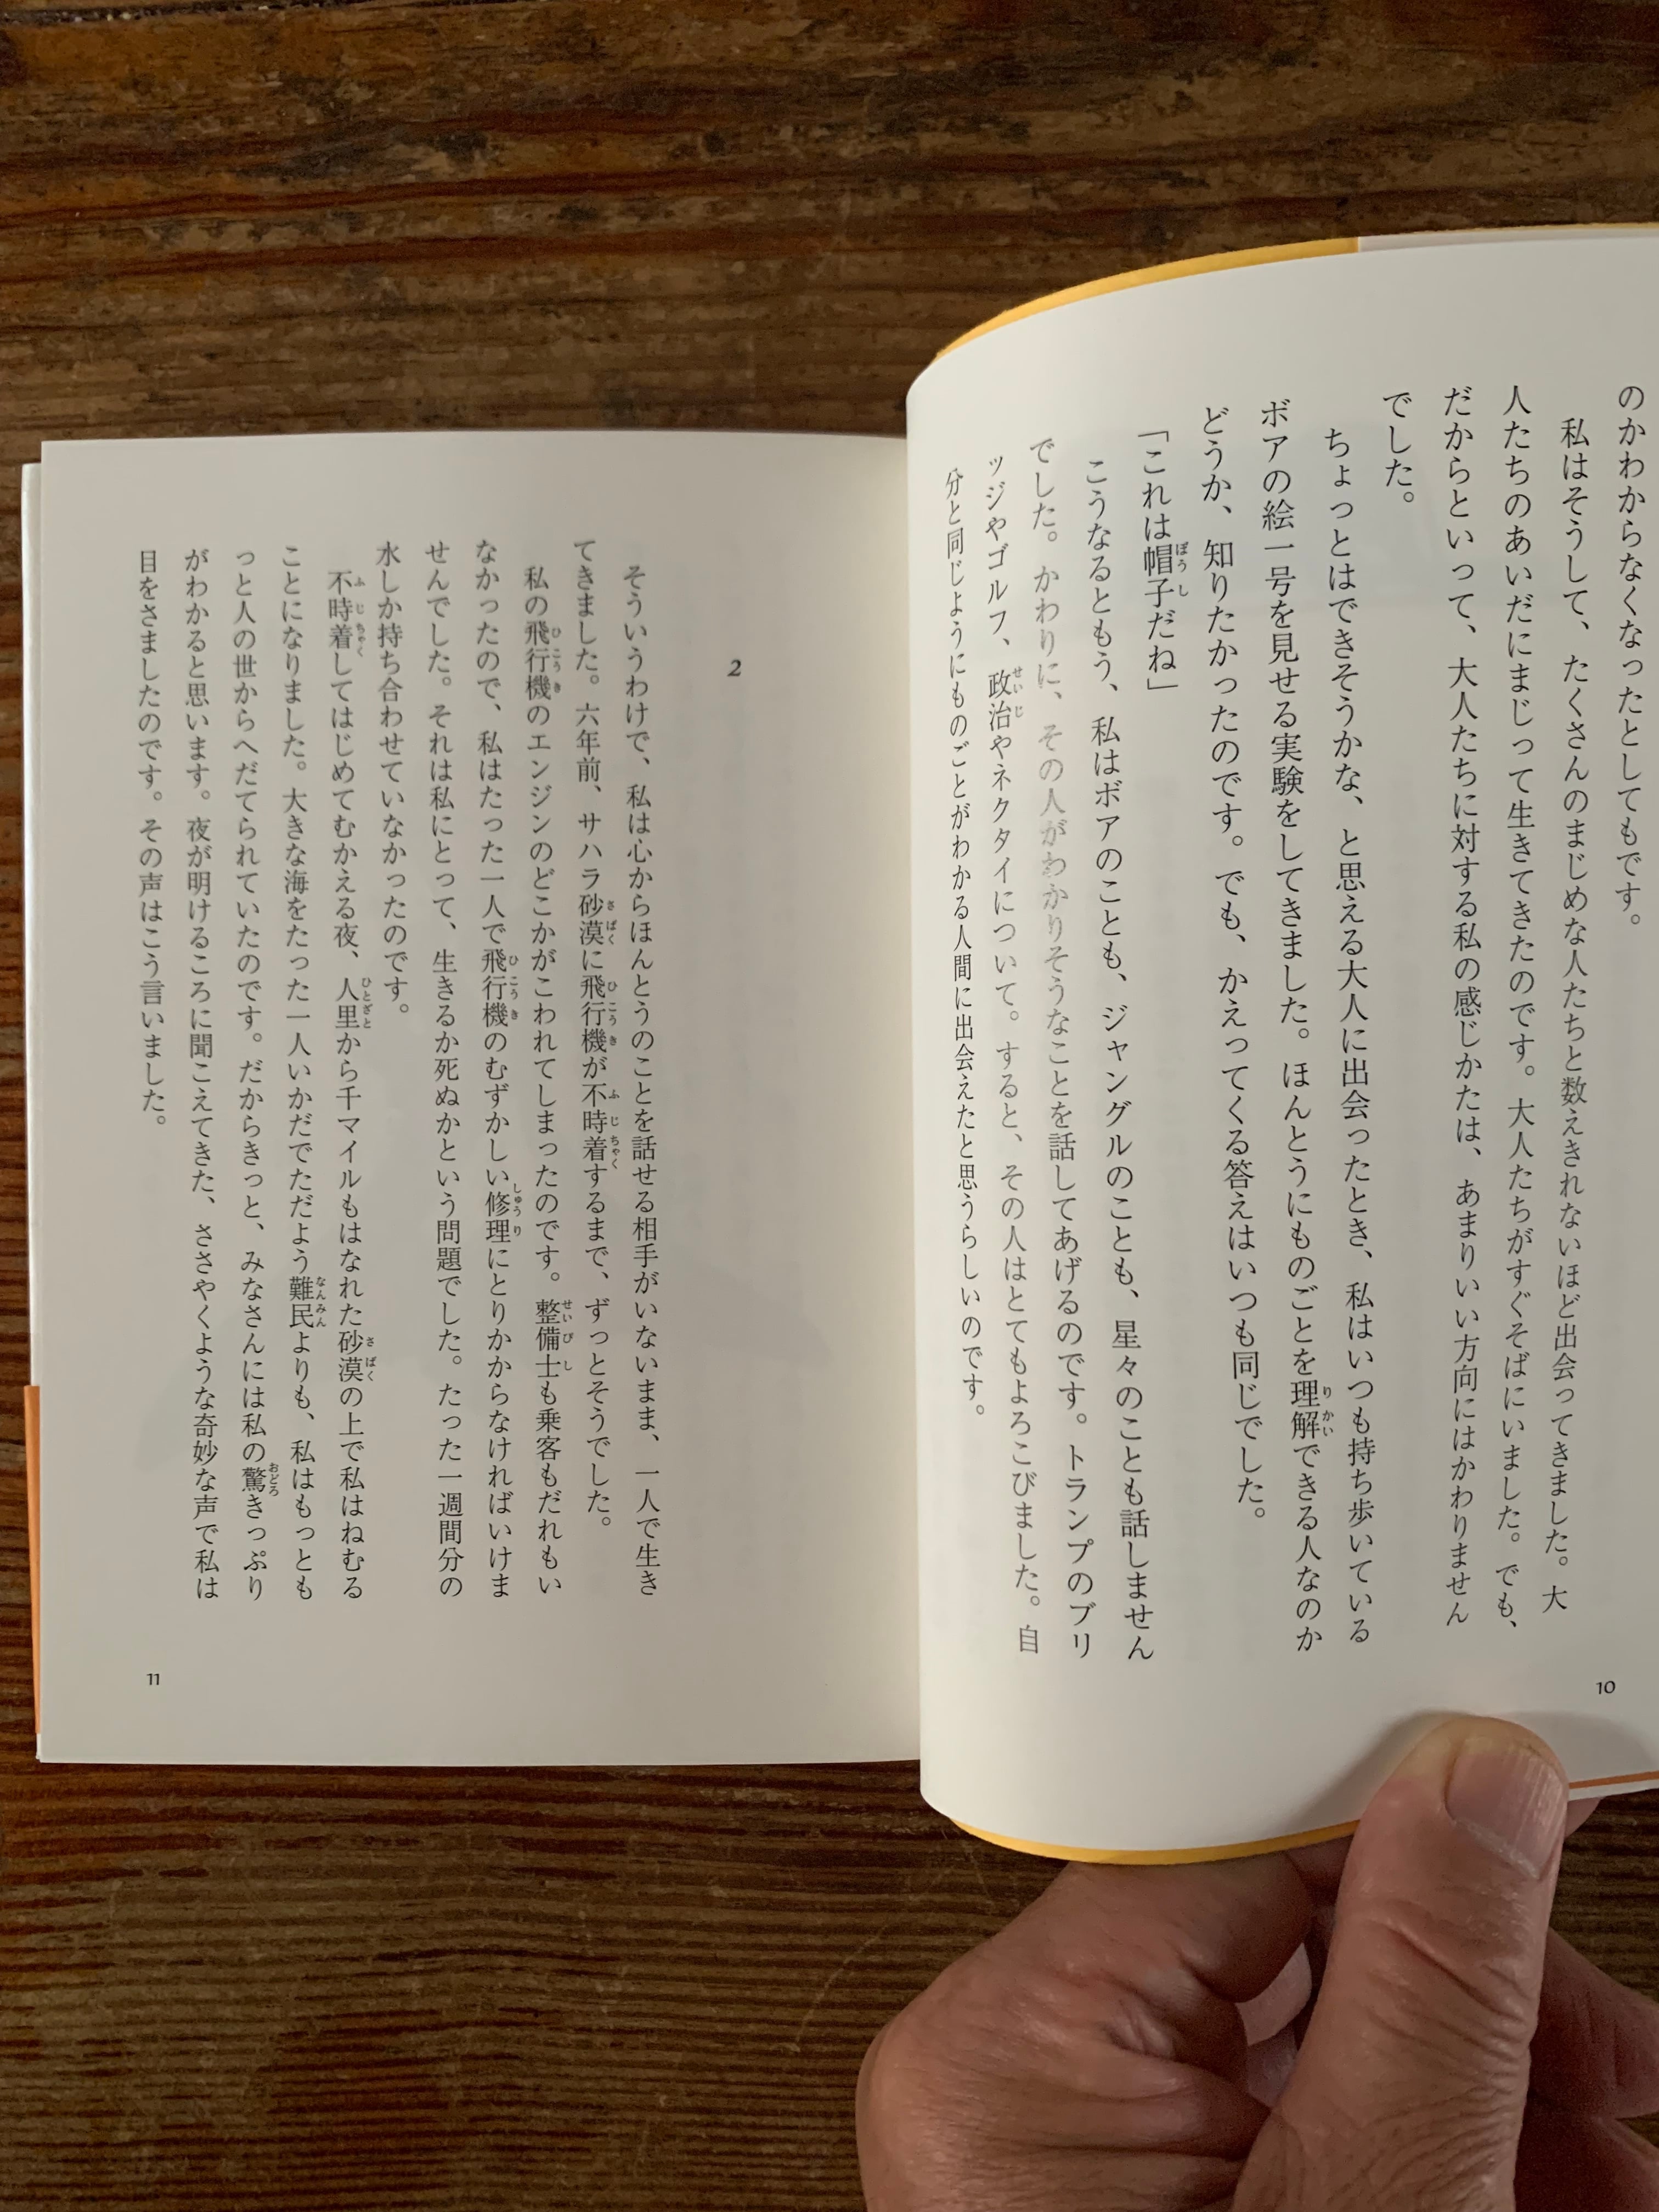 のかわからなくなったとしてもです。
私はそうして、たくさんのまじめな人たちと数えきれないほど出会ってきました。大
人たちのあいだにまじって生きてきたのです。大人たちがすぐそばにいました。でも、
だからといって、大人たちに対する私の感じかたは、あまりいい方向にはかわりません
でした。
ちょっとはできそうかな、と思える大人に出会ったとき、私はいつも持ち歩いている
ボアの絵一号を見せる実験をしてきました。ほんとうにものごとを理解できる人なのか
どうか、知りたかったのです。でも、かえってくる答えはいつも同じでした。
「これは帽子だね」
こうなるともう、私はボアのことも、ジャングルのことも、星々のことも話しません
でした。かわりに、その人がわかりそうなことを話してあげるのです。トランプのブリ
ッジやゴルフ、政治やネクタイについて。すると、その人はとてもよろこびました。自
分と同じようにものごとがわかる人間に出会えたと思うらしいのです。
10
2
そういうわけで、私は心からほんとうのことを話せる相手がいないまま、一人で生き
てきました。六年前、サハラ砂漠に飛行機が不時着するまで、ずっとそうでした。
私の飛行機のエンジンのどこかがこわれてしまったのです。整備士も乗客もだれもい
なかったので、私はたった一人で飛行機のむずかしい修理にとりかからなければいけま
せんでした。それは私にとって、生きるか死ぬかという問題でした。たった一週間分の
水しか持ち合わせていなかったのです。
不時着してはじめてむかえる夜、人里から千マイルもはなれた砂漠の上で私はねむる
ことになりました。大きな海をたった一人いかだでただよう難民よりも、私はもっとも
っと人の世からへだてられていたのです。だからきっと、みなさんには私の驚きっぷり
がわかると思います。夜が明けるころに聞こえてきた、ささやくような奇妙な声で私は
目をさましたのです。その声はこう言いました。
11